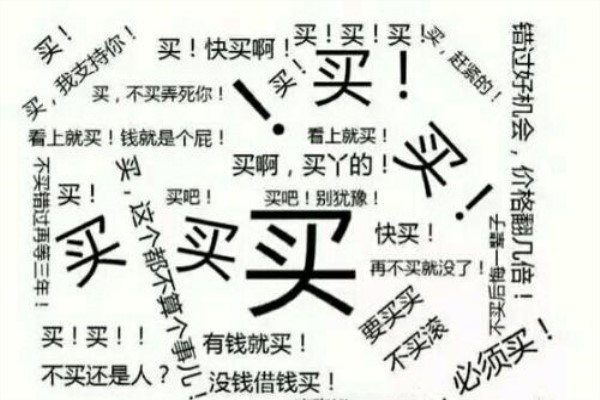 买！
买，我支持你！
买！快买啊！
买！买！买！
买，赶紧的！
错过好机会，价格翻几倍！
买，不买弄死你！
买！
买！
看上就买！钱就是个屁！
！
看上就买！
买啊，买丫的！
买！
不买错过再等三年！
买！
买，这个都不算个事儿！
买吧！
买吧！别犹豫！
买
买
买
快买！
再不买就没了！
不买后悔一辈子
买！买！！
有钱就买！
要买买
不买滚
必须买！
不买还是人？
没钱借钱买！